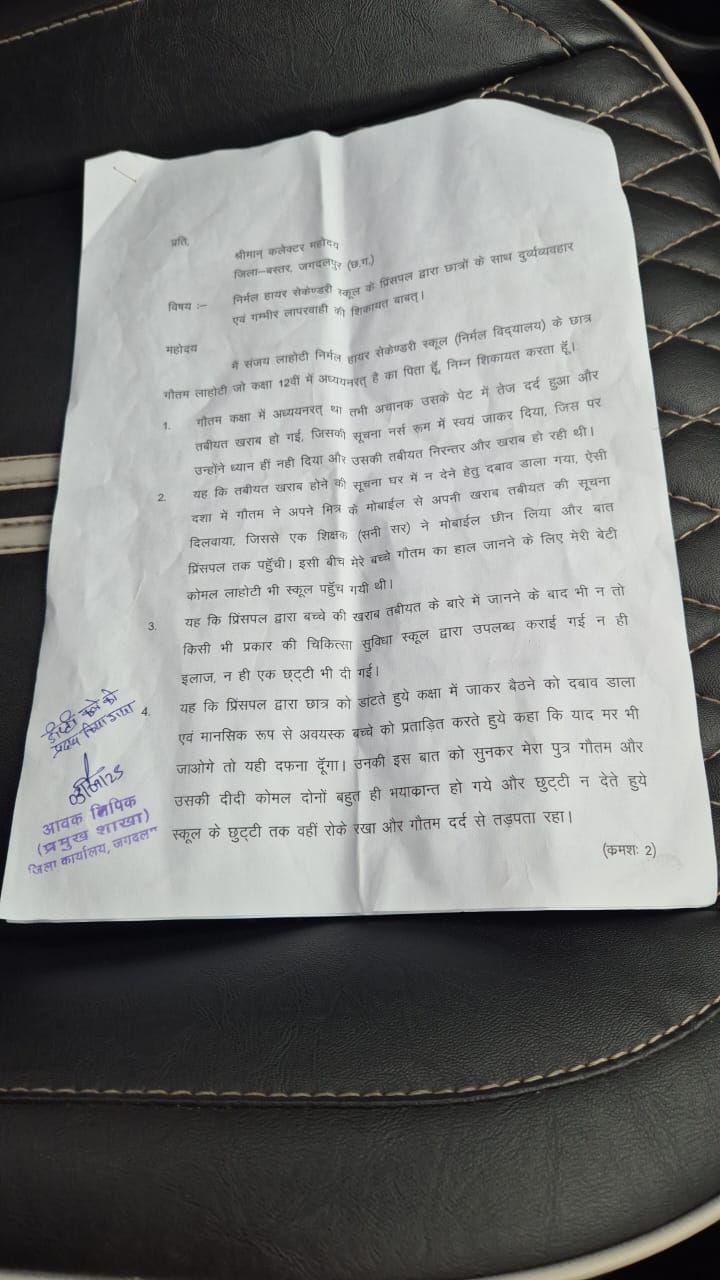 प्रति,
श्रीमान् कलेक्टर महोदय
जिला–बस्तर, जगदलपुर (छ.ग.)
विषय :– निर्मल हायर सेकेण्डरी स्कूल के प्रिंसपल द्वारा छात्रों के साथ दुर्व्यव्यवहार
एवं गम्भीर लापरवाही की शिकायत बाबत्।
महोदय
मैं संजय लाहोटी निर्मल हायर सेकेण्डरी स्कूल (निर्मल विद्यालय) के छात्र
गौतम लाहोटी जो कक्षा 12वीं में अध्ययनरत् है का पिता हूँ, निम्न शिकायत करता हूँ।
1. गौतम कक्षा में अध्ययनरत् था तभी अचानक उसके पेट में तेज दर्द हुआ और
तबीयत खराब हो गई, जिसकी सूचना नर्स रूम में स्वयं जाकर दिया, जिस पर
उन्होंने ध्यान हीं नही दिया और उसकी तबीयत निरन्तर और खराब हो रही थी।
2. यह कि तबीयत खराब होने की सूचना घर में न देने हेतु दबाव डाला गया, ऐसी
दशा में गौतम ने अपने मित्र के मोबाईल से अपनी खराब तबीयत की सूचना
दिलवाया, जिससे एक शिक्षक (सनी सर) ने मोबाईल छीन लिया और बात
प्रिंसपल तक पहुँची। इसी बीच मेरे बच्चे गौतम का हाल जानने के लिए मेरी बेटी
कोमल लाहोटी भी स्कूल पहुँच गयी थी।
3. यह कि प्रिंसपल द्वारा बच्चे की खराब तबीयत के बारे में जानने के बाद भी न तो
किसी भी प्रकार की चिकित्सा सुविधा स्कूल द्वारा उपलब्ध कराई गई न ही
इलाज, न ही एक छट्टी भी दी गई।
4. यह कि प्रिंसपल द्वारा छात्र को डांटते हुये कक्षा में जाकर बैठने को दबाव डाला
एवं मानसिक रूप से अवयस्क बच्चे को प्रताड़ित करते हुये कहा कि याद मर भी
जाओगे तो यही दफना दूँगा। उनकी इस बात को सुनकर मेरा पुत्र गौतम और
उसकी दीदी कोमल दोनों बहुत ही भयाक्रान्त हो गये और छुट्टी न देते हुये
स्कूल के छुट्टी तक वहीं रोके रखा और गौतम दर्द से तड़पता रहा।
(कमशः 2)
आवक लिपिक
(प्रमुख शाखा)
जिला कार्यालय, जगदल